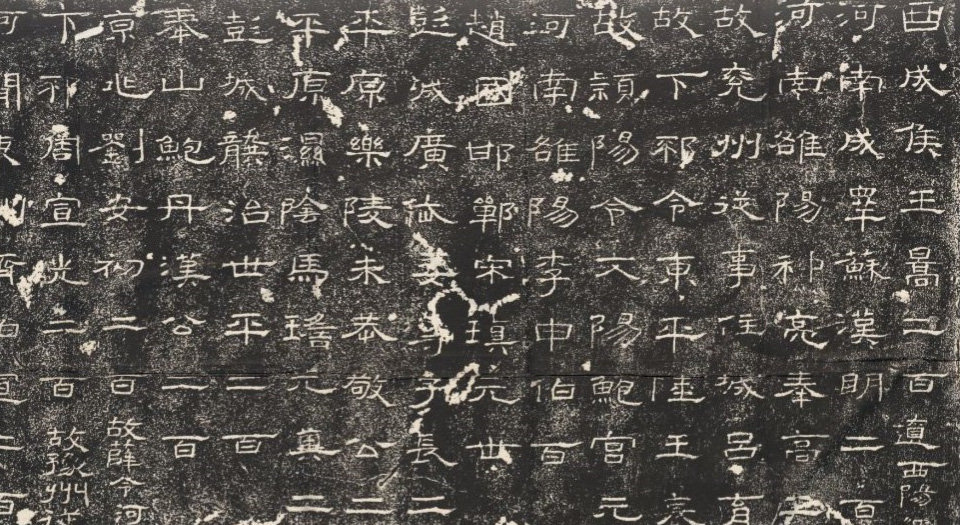 西成侯王暠二百遺西陽
河南成睪蘇漢明二百
河南雒陽种亮奉高
故兗州從事任城呂育
故下邳令東平陸王褒
故潁陽令文陽鮑宮元
河南雒陽李申伯百
趙國邯鄲宋瑱元世
彭城廣戚姜尋子長二
平原樂陵朱恭敬公二
平原濕陰馬瑤元冀二
彭城龔治世平二百
泰山鮑丹漢公二百
京兆劉安初二百故薛令河
下邳周宣光二百故豫州從
河間束州齊伯宣二百